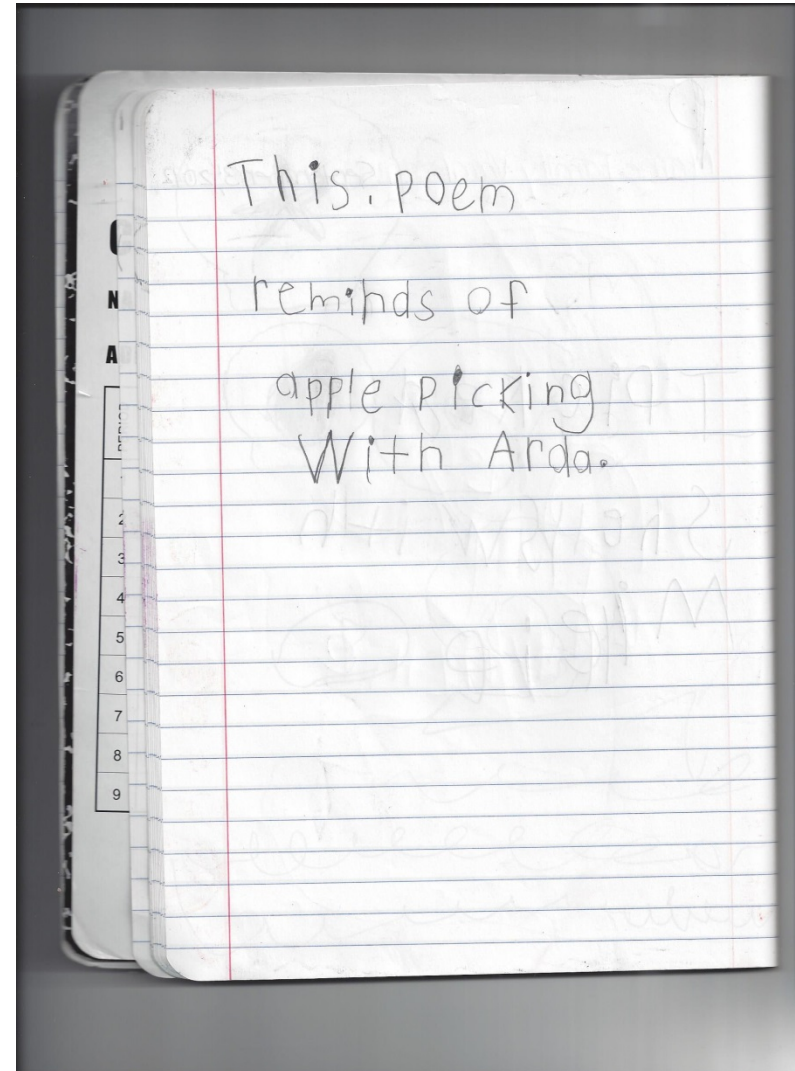 This. poem
reminds of
apple picking
With Arda.
N
A
PERIOD
2
3
4
5
6
7
8
9